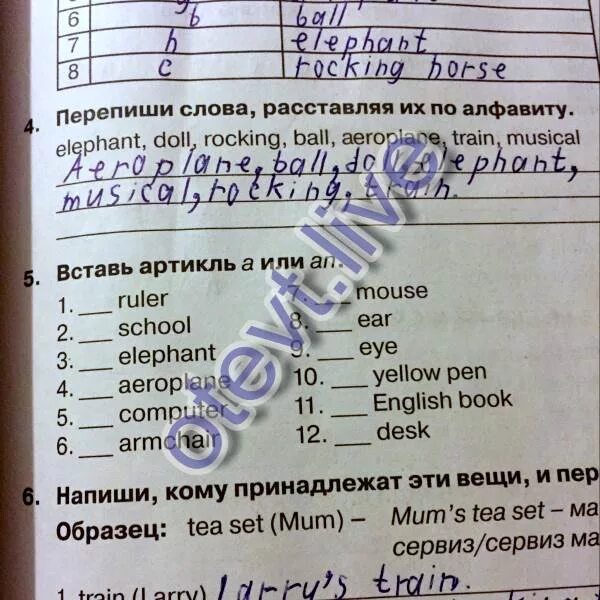 6 b ball
7 h elephant
8 c rocking horse
4. Перепиши слова, расставляя их по алфавиту.
elephant, doll, rocking, ball, aeroplane, train, musical
Aeroplane, ball, doll, elephant,
musical, rocking, train.
5. Вставь артикль a или an.
1. ___ ruler
2. ___ school
3. ___ elephant
4. ___ aeroplane
5. ___ computer
6. ___ armchair
7. ___ mouse
8. ___ ear
9. ___ eye
10. ___ yellow pen
11. ___ English book
12. ___ desk
otevt.live
6. Напиши, кому принадлежат эти вещи, и пер
Образец: tea set (Mum) – Mum's tea set – ма
сервиз/сервиз ма
1. train (Larry) Larry's train.